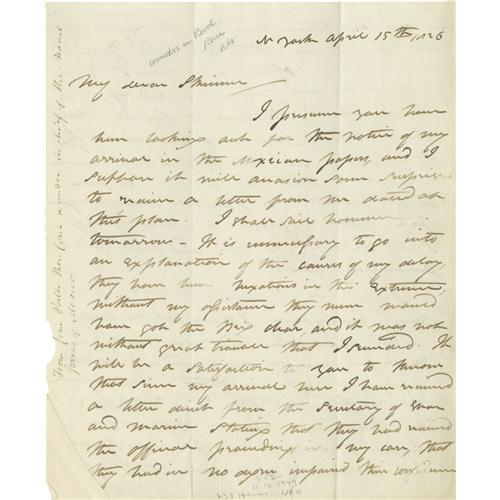 N York April 15th 1826
My dear Skinner
I presume you have
been looking out for the notice of my
arrival in the Mexican papers, and I
suppose it will occasion some surprise
to receive a letter from me dated at
this place. I shall sail however
tomorrow - It is unnecessary to go into
an explanation of the causes of my delay,
they have been vexatious in the Extreme,
without my assistance they never would
have got the Brig clear, and it was not
without great trouble that I succeeded. It
will be a satisfaction to you to know
that since my arrival here I have received
a letter direct from the Secretary of War
and marine stating that they had received
the official proceedings in my case, that
they had in no degree impaired their confidence
From Com Porter then Com
in chief of the
11-16-1944